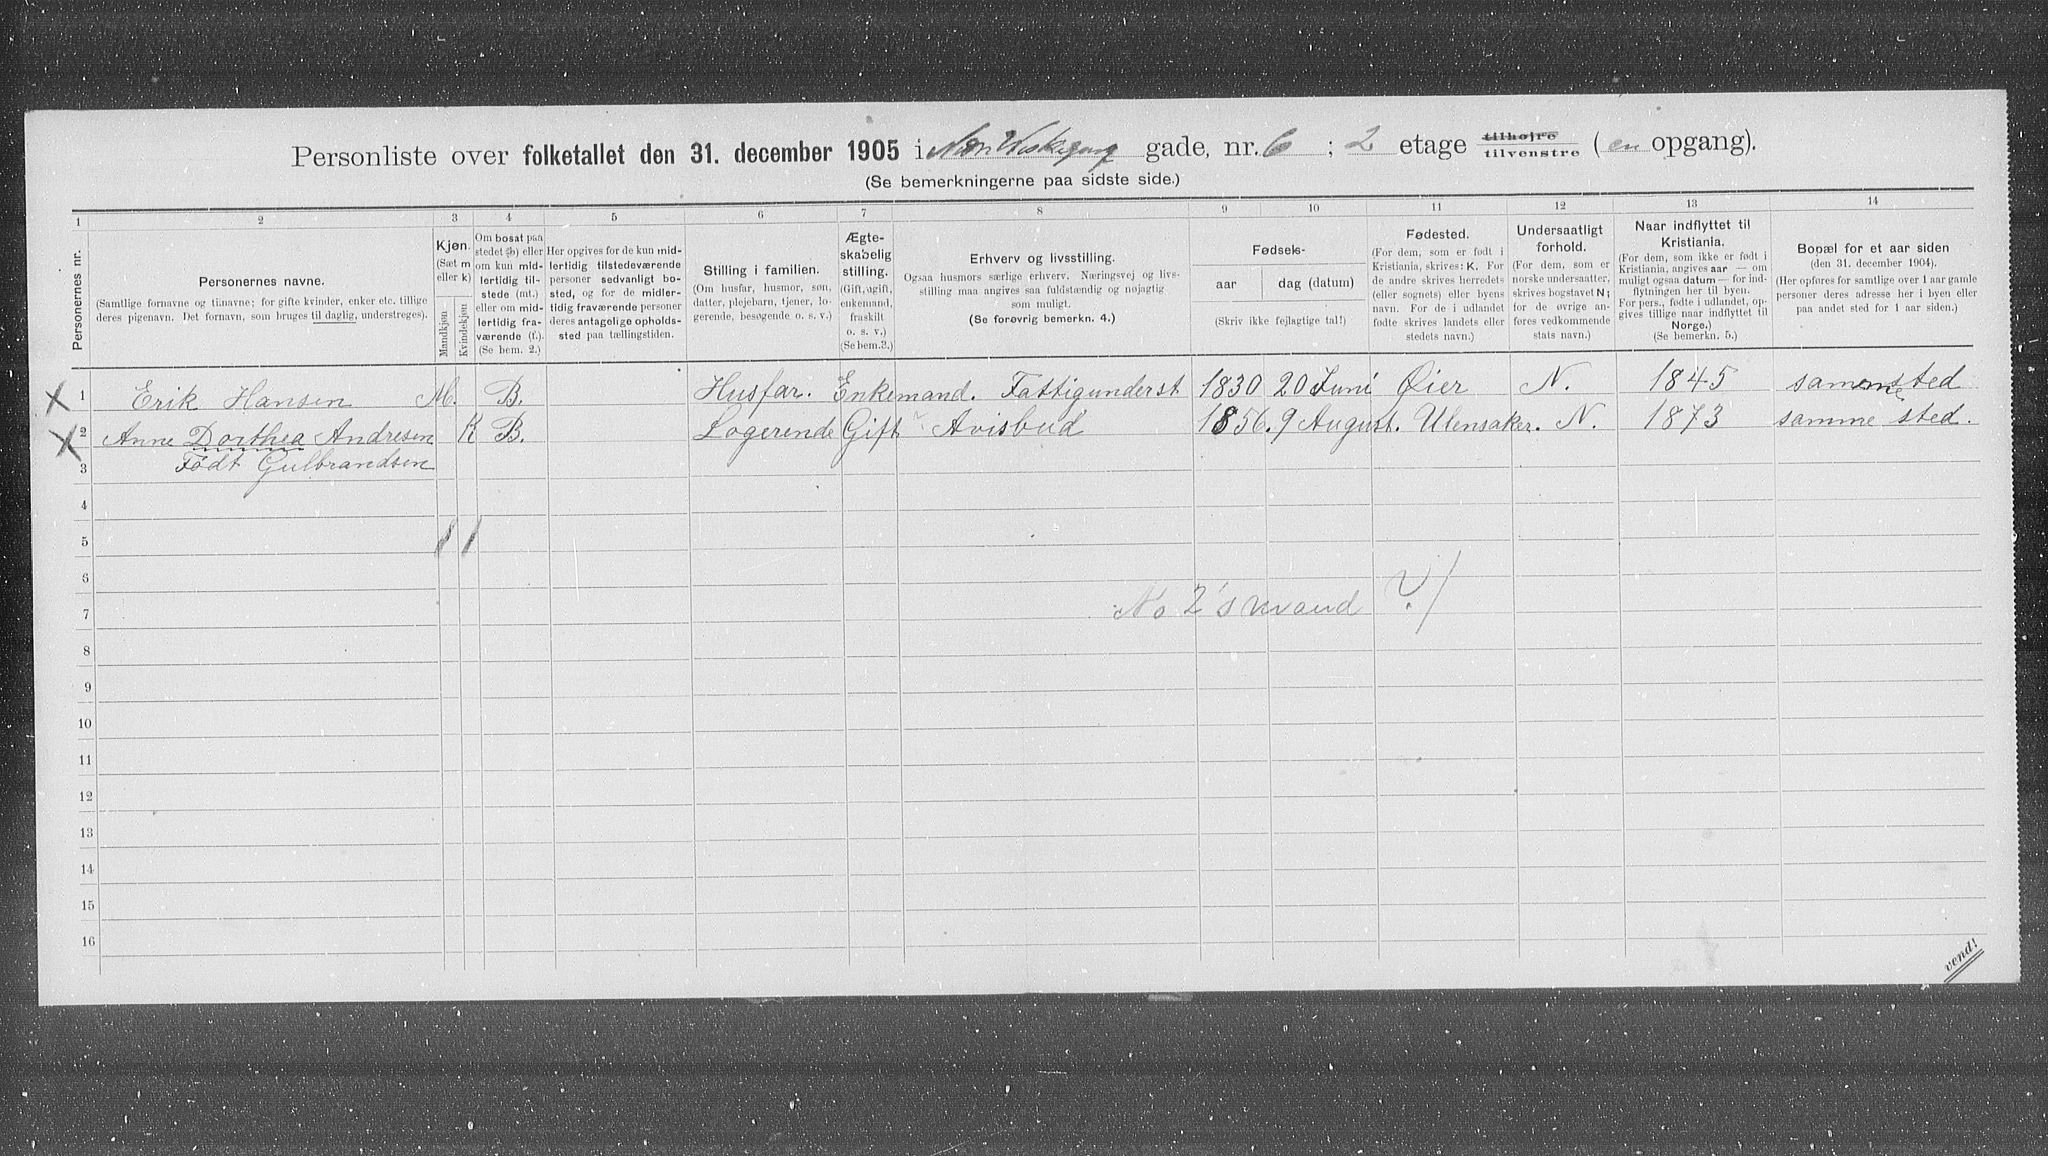 Personliste over folketallet den 31. december 1905 i gade, nr. 6 ; 2 etage tilhøjre tilvenstre (en opgang).
(Se bemerkningerne paa sidste side.)
1 2 3 4 5 6 7 8 9 10 11 12 13 14
Personernes nr.
Personernes navne.
(Samtlige fornavne og tilnavne; for gifte kvinder, enker etc. tillige
deres pigenavn. Det fornavn, som bruges til daglig, understreges).
Kjøn.
(Sæt m
eller k)
Mandkjøn
Kvindekjøn
Om bosat paa
stedet (b) eller
om kun mid-
lertidig til-
stede (mt.)
eller om mid-
lertidig fra-
værende (f.).
(Se bem. 2.)
Her opgives for de kun mid-
lertidig tilstedeværende
personer sedvanligt bo-
sted, og for de midler-
tidig fraværende personer
deres antagelige opholds-
sted paa tællingstiden.
Stilling i familien.
(Om husfar, husmor, søn,
datter, plejebarn, tjener, lo-
gerende, besøgende o. s. v.)
Ægte-
skabelig
stilling.
(Gift, ugift,
enkemand,
fraskilt
o. s. v.)
(Se bem. 3.)
Erhverv og livsstilling.
Ogsaa husmors særlige erhverv. Næringsvej og livs-
stilling maa angives saa fuldstændig og nøjagtig
som muligt.
(Se forøvrig bemerkn. 4.)
Fødsels-
aar
dag (datum)
(Skriv ikke fejlagtige tal!)
Fødested.
(For dem, som er født i
Kristiania, skrives: K. For
de andre skrives herredets
(eller sognets) eller byens
navn. For de i udlandet
fødte skrives landets eller
stedets navn.)
Undersaatligt
forhold.
(For dem, som er
norske undersaatter,
skrives bogstavet N;
for de øvrige an-
føres vedkommende
stats navn.)
Naar indflyttet til
Kristiania.
(For dem, som ikke er født i
Kristiania, angives aar — om
muligt ogsaa datum — for ind-
flytningen her til byen.
For pers., fødte i udlandet, op-
gives tillige naar indflyttet til
Norge.)
(Se bemerkn. 5.)
Bopæl for et aar siden
(den 31. december 1904).
(Her opføres for samtlige over 1 aar gamle
personer deres adresse her i byen eller
paa andet sted for 1 aar siden.)
X 1 Erik Hansen M. B. Husfar. Enkemand. Fattigunderst 1830 20 Juni Øier N. 1845 sammested
X 2 Anne Dorthea Andresen K B. Logerende Gift Avisbud 1856. 9 August. Ulensaker. N. 1873 samme sted.
3 Født Gulbrandsen
4
5
6
7 No 2's mand ?
8
9
10
11
12
13
14
15
16
vend!